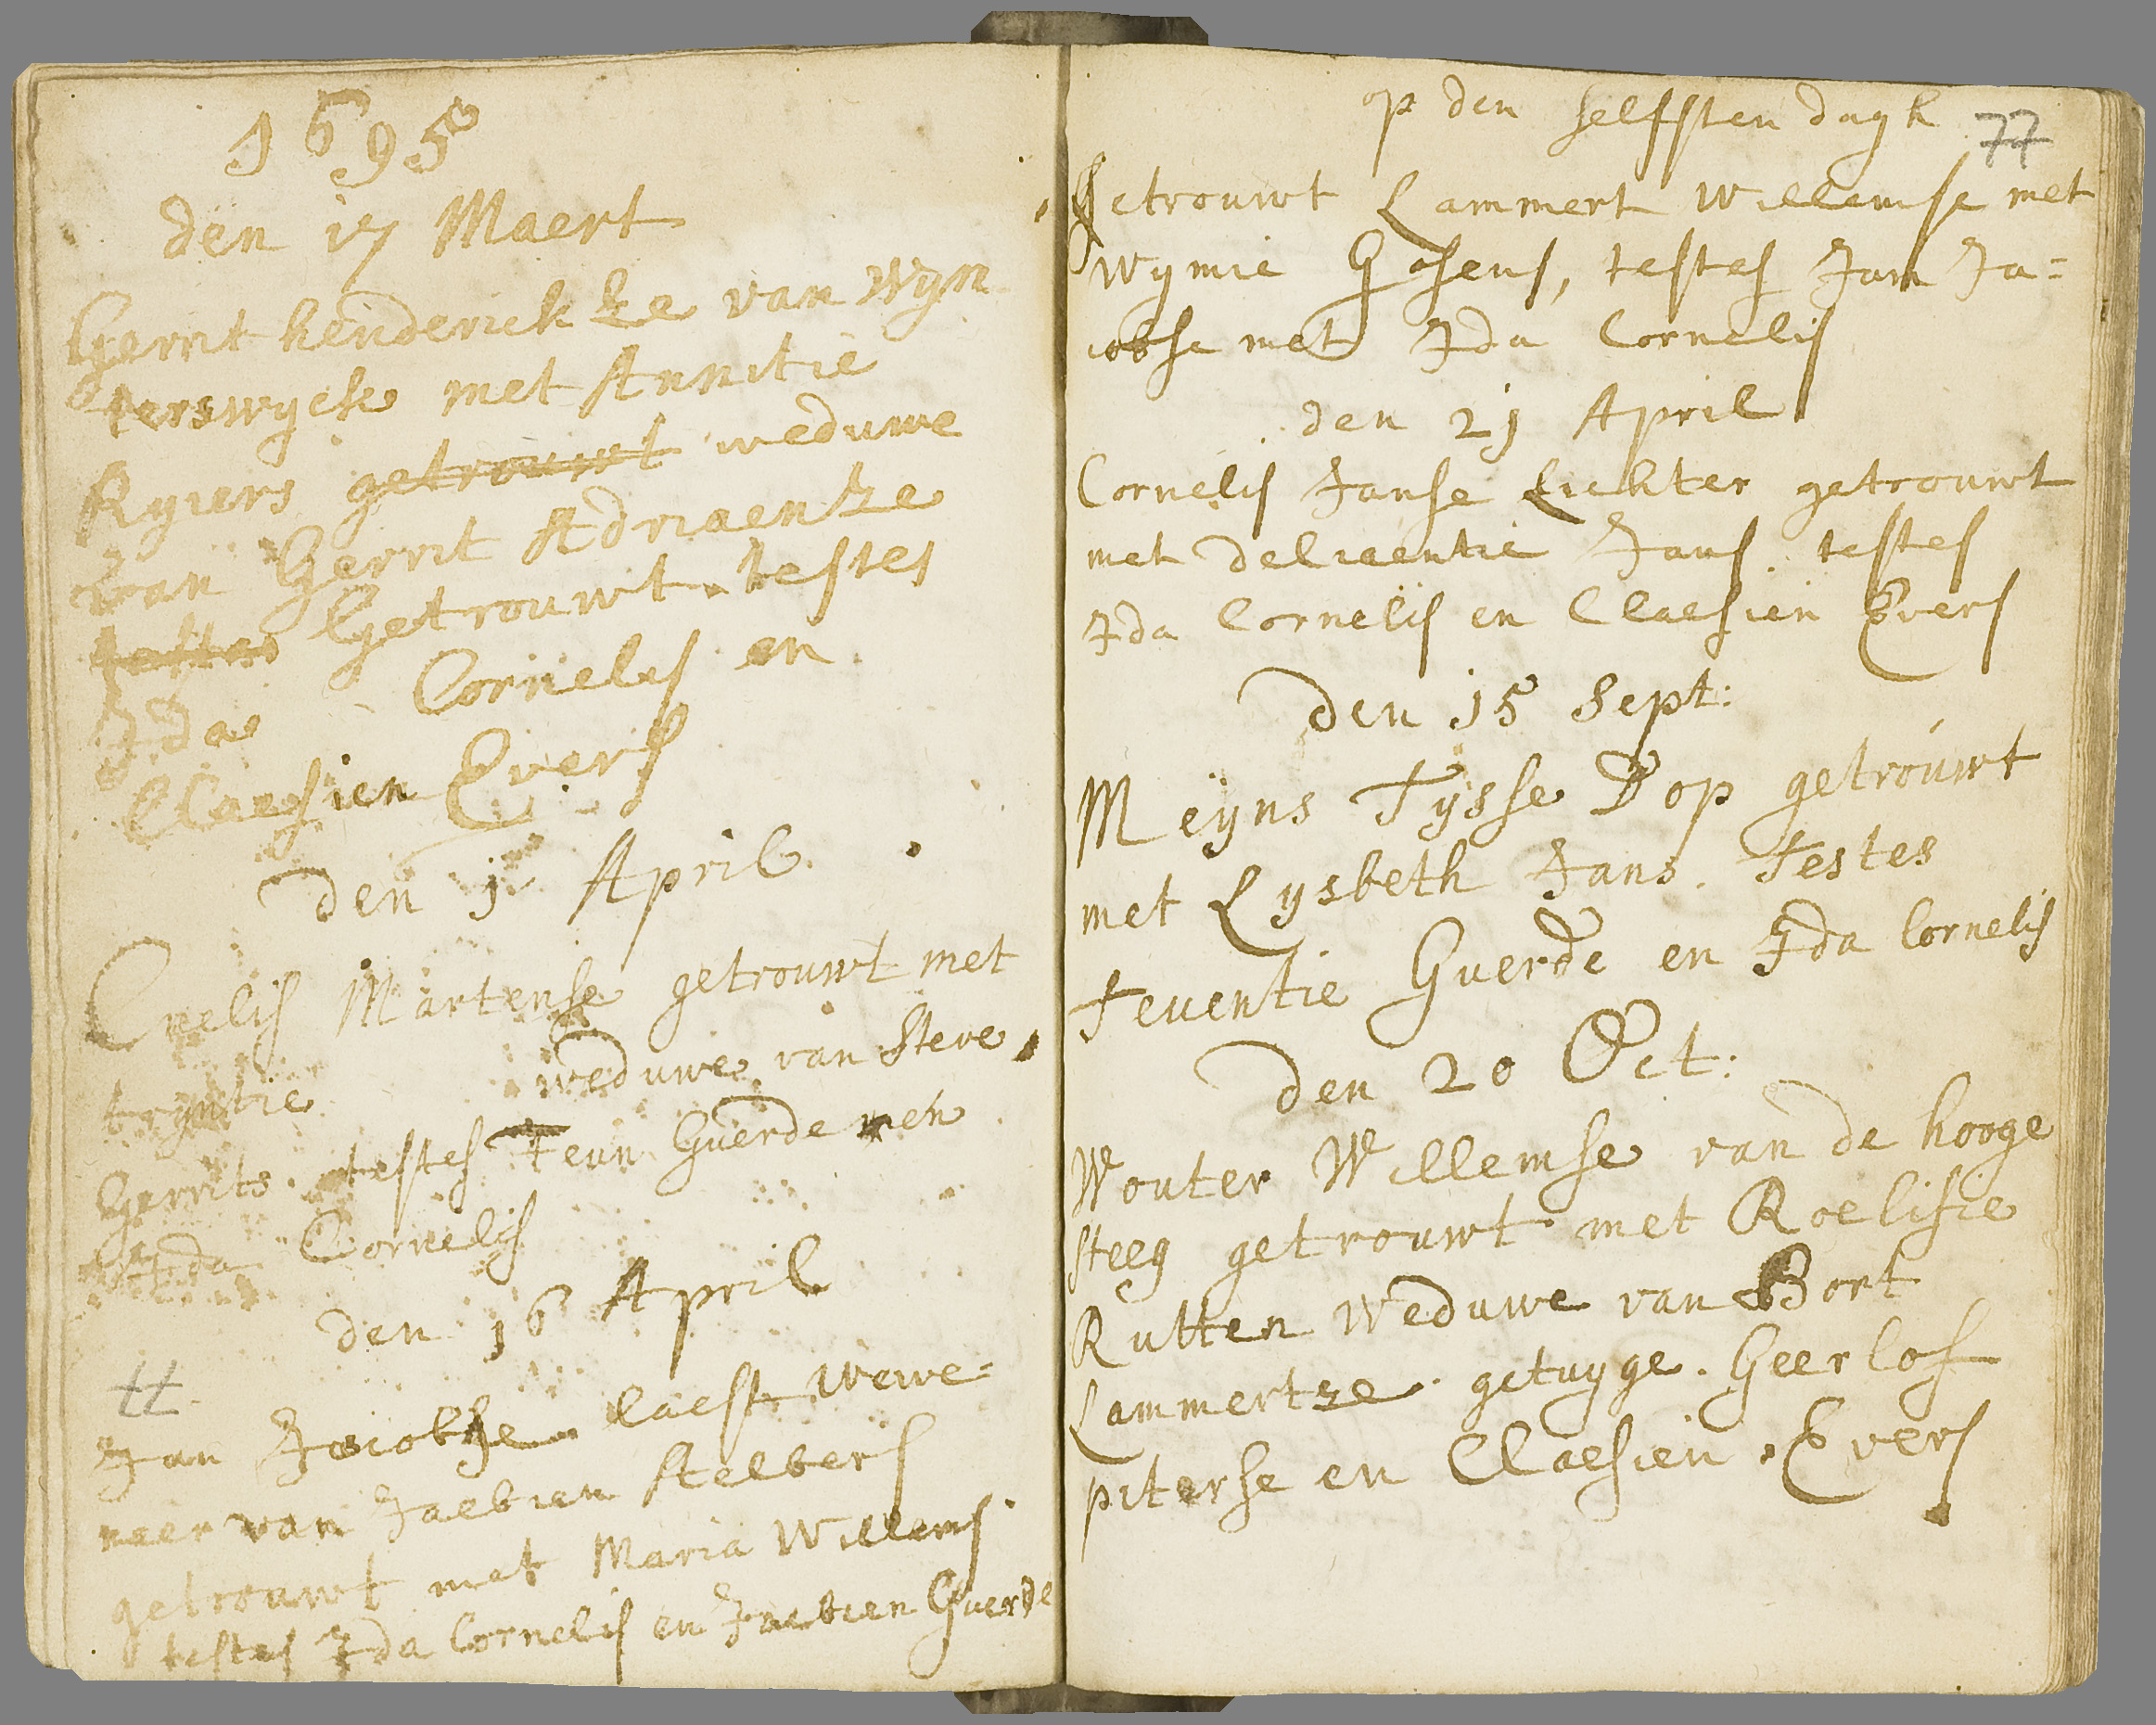 1695
den 17 Maert
Gerrit henderickze van wijn
terswyck met Annitie
Ryiers getrouwt weduwe
van Gerrit Adriaenze
testes Getrouwt. testes
Ida Cornelis en
Claesien Evers
den 1 April
Cnelis Martense getrouwt met
tryntie weduwe van Steve
Gerrits. testes Teun Guerde en
Ida Cornelis
den 16 April
tt.
Jan Jaiobse laest wewe=
naer van Jaebien Stelbers
getrouwt met Maria Willems
testes Ida Cornelis en Jaebien Guerde
op den selfsten dagh 77
Getrouwt Lammert Willemse met
Wymie Gosens, testes Jan Ja=
iobse met Ida Cornelis
den 21 April
Cornelis Janse Lichter getrouwt
met deliaentie Jans. testes
Ida Cornelis en Claesien Evers
den 15 Sept:
Meyns Tysse Dop getrouwt
met Lysbeth Jans. Testes
Teuentie Guerde en Ida Cornelis
den 20 Oct:
Wouter Willemse van de hooge
steeg getrouwt met Roelisie
Rutten Weduwe van Bort
Lammertze. getuyge. Geerlof
piterse en Claesien Evers